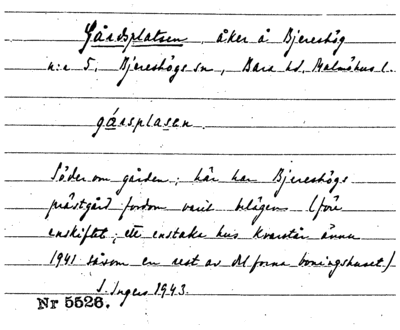 Gårdsplatsen, åker å Bjereshög
n:r 5, Bjereshögs sn, Bara hd, Malmöhus l.
gårsplasen.
Söder om gården; här har Bjereshögs
prästgård fordom varit belägen (före
enskiftet; ett enstaka hus kvarstår ännu
1941 såsom en rest av det forna boningshuset)
I. Ingers 1943.
Nr 5526.